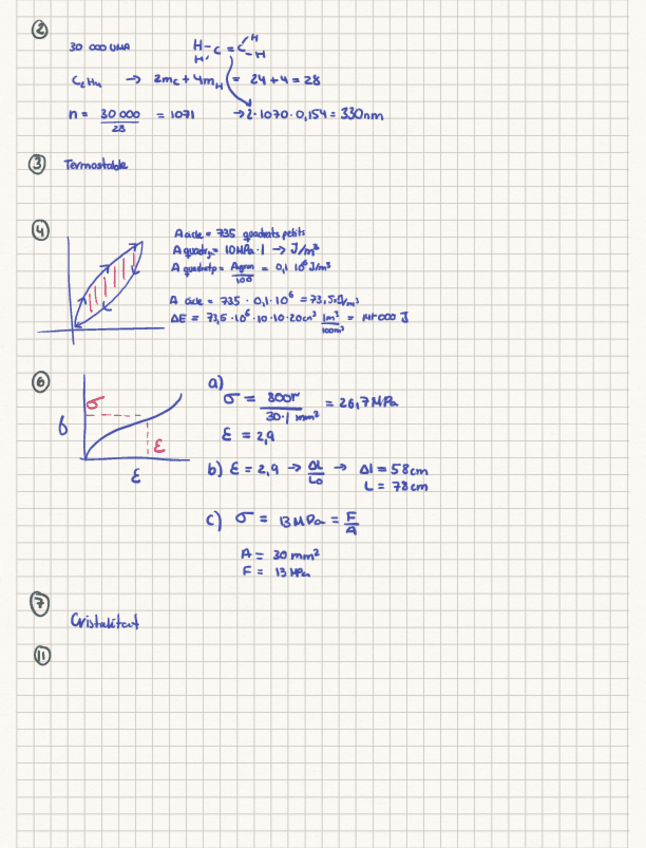 ②
30 000 UMA
H - C = C H
H' - H
C₂H₄ → 2mc + 4mH = 24 + 4 = 28
n = 30 000 / 28 = 1071 → 2 · 1070 · 0,154 = 330nm
③ Termostable
④
A cicle = 735 quadrats petits
A quadrg = 10 MPa · 1 → J/m³
A quadratp = Agran / 100 = 0,1 10⁶ J/m³
A cicle = 735 · 0,1 · 10⁶ = 73,5 J/m³
ΔE = 73,5 · 10⁶ · 10 · 10 · 20 cm³ 1m³ / 100m³ = 147 000 J
⑥
a)
σ = 800N / 30·1 mm² = 26,7 MPa
ε = 2,9
σ
σ
ε
ε
b) ε = 2,9 → ΔL / L₀ → Δl = 58cm
L = 78cm
c) σ = 13 MPa = F / A
A = 30 mm²
F = 13 MPa
⑦
Cristalitzat
⑪